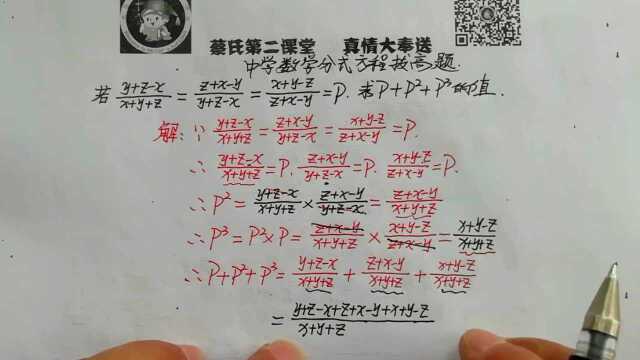 蔡氏第二课堂 真情大奉送
中学数学分式方程拔高题.
若 (y+z-x)/(x+y+z) = (z+x-y)/(y+z-x) = (x+y-z)/(z+x-y) = P. 求P+P²+P³的值.
解: ∵ (y+z-x)/(x+y+z) = (z+x-y)/(y+z-x) = (x+y-z)/(z+x-y) = P.
∴ (y+z-x)/(x+y+z) = P. (z+x-y)/(y+z-x) = P. (x+y-z)/(z+x-y) = P.
∴ P² = (y+z-x)/(x+y+z) × (z+x-y)/(y+z-x) = (z+x-y)/(x+y+z)
∴ P³ = P²×P = (z+x-y)/(x+y+z) × (x+y-z)/(z+x-y) = (x+y-z)/(x+y+z)
∴ P+P²+P³ = (y+z-x)/(x+y+z) + (z+x-y)/(x+y+z) + (x+y-z)/(x+y+z)
= (y+z-x+z+x-y+x+y-z)/(x+y+z)